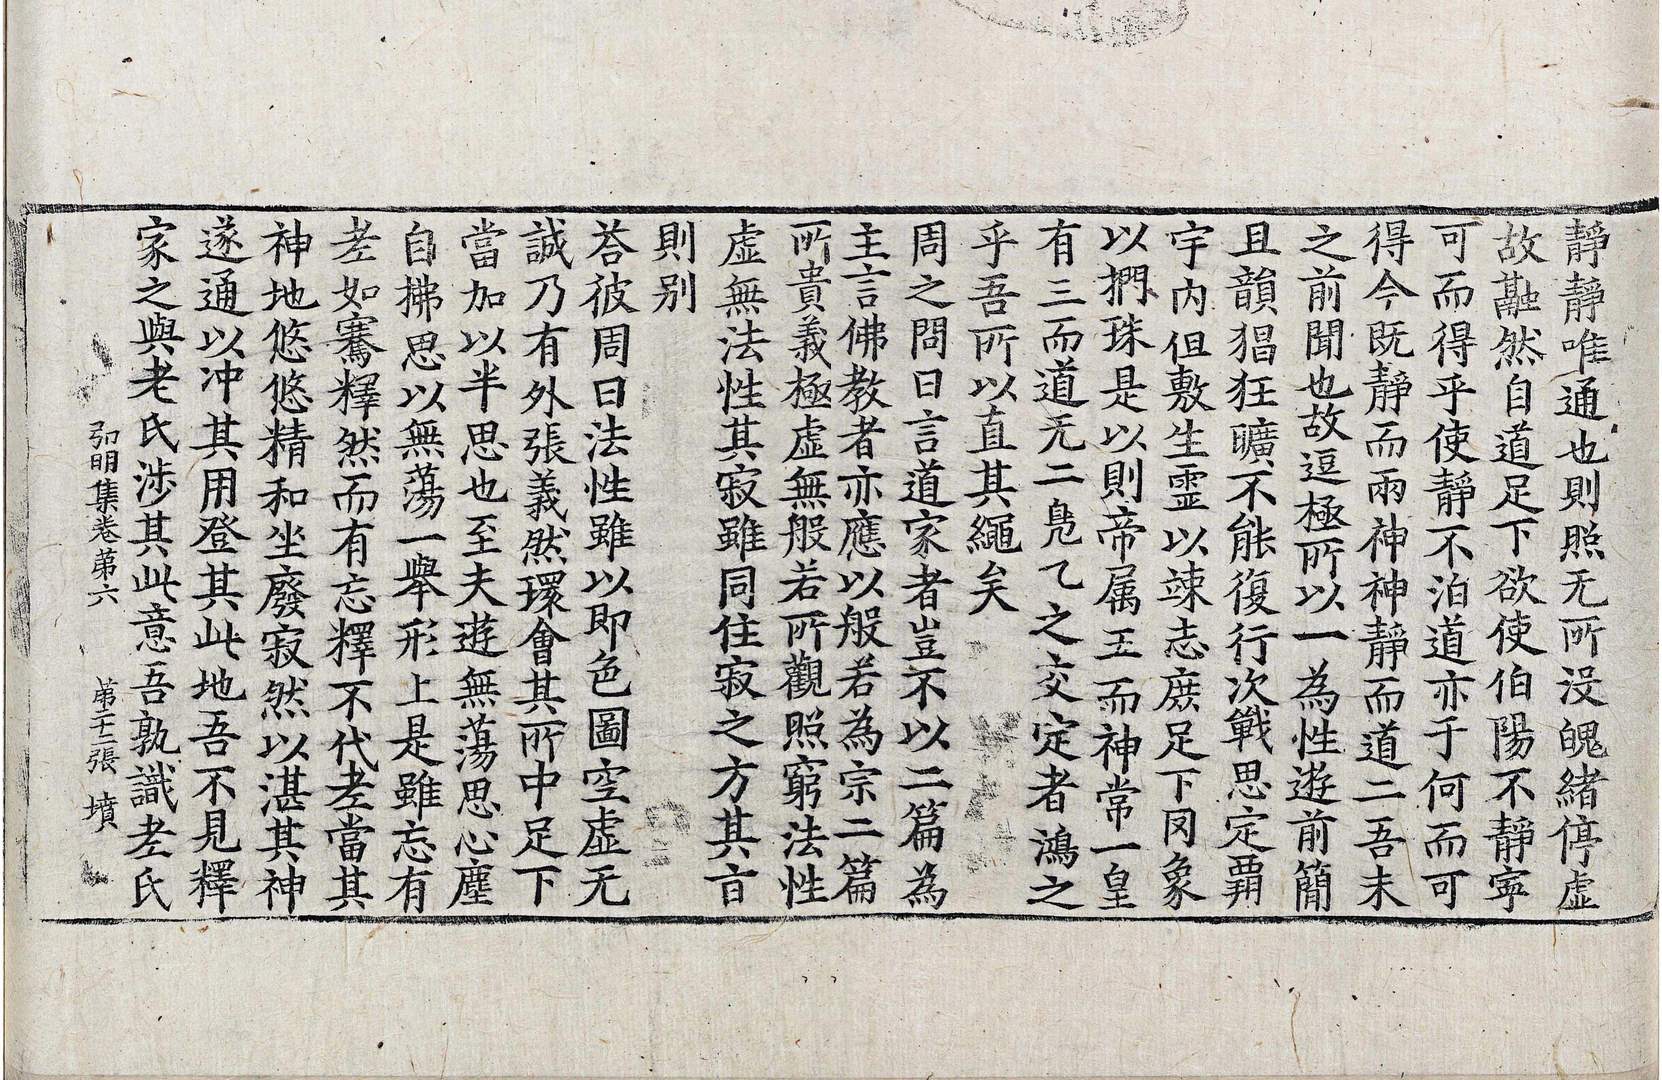 靜靜唯通也則照无所没魄緒停虛
故融然自道足下欲使伯陽不靜寧
可而得乎使靜不泊道亦于何而可
得今既靜而兩神神靜而道二吾未
之前聞也故逗極所以一為性遊前簡
且韻猖狂曠不能復行次戰思定霸
宇内但敷生靈以竦志庶足下罔象
以捫珠是以則帝属五而神常一皇
有三而道无二鳬乙之交定者鴻之
乎吾所以直其繩矣
周之問曰言道家者豈不以二篇為
主言佛教者亦應以般若為宗二篇
所貴義極虛無般若所觀照窮法性
虛無法性其寂雖同住寂之方其旨
則别
荅彼周曰法性雖以即色圖空虛无
誠乃有外張義然環會其所中足下
當加以半思也至夫遊無蕩思心塵
自拂思以無蕩一舉形上是雖忘有
老如騫釋然而有忘釋不代老當其
神地悠悠精和坐廢寂然以湛其神
遂通以冲其用登其此地吾不見釋
家之與老氏涉其此意吾孰識老氏
弘明集卷第六 第二十二張 墳